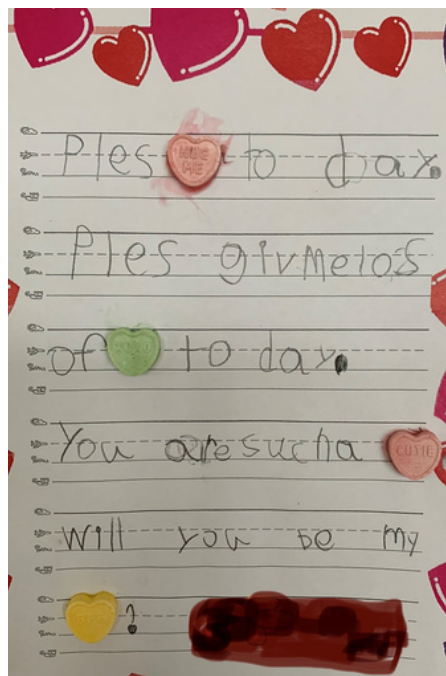 Ples HUG ME to day.
Ples givmelos
of to day.
You aresucha CUTIE
Will you be my
?